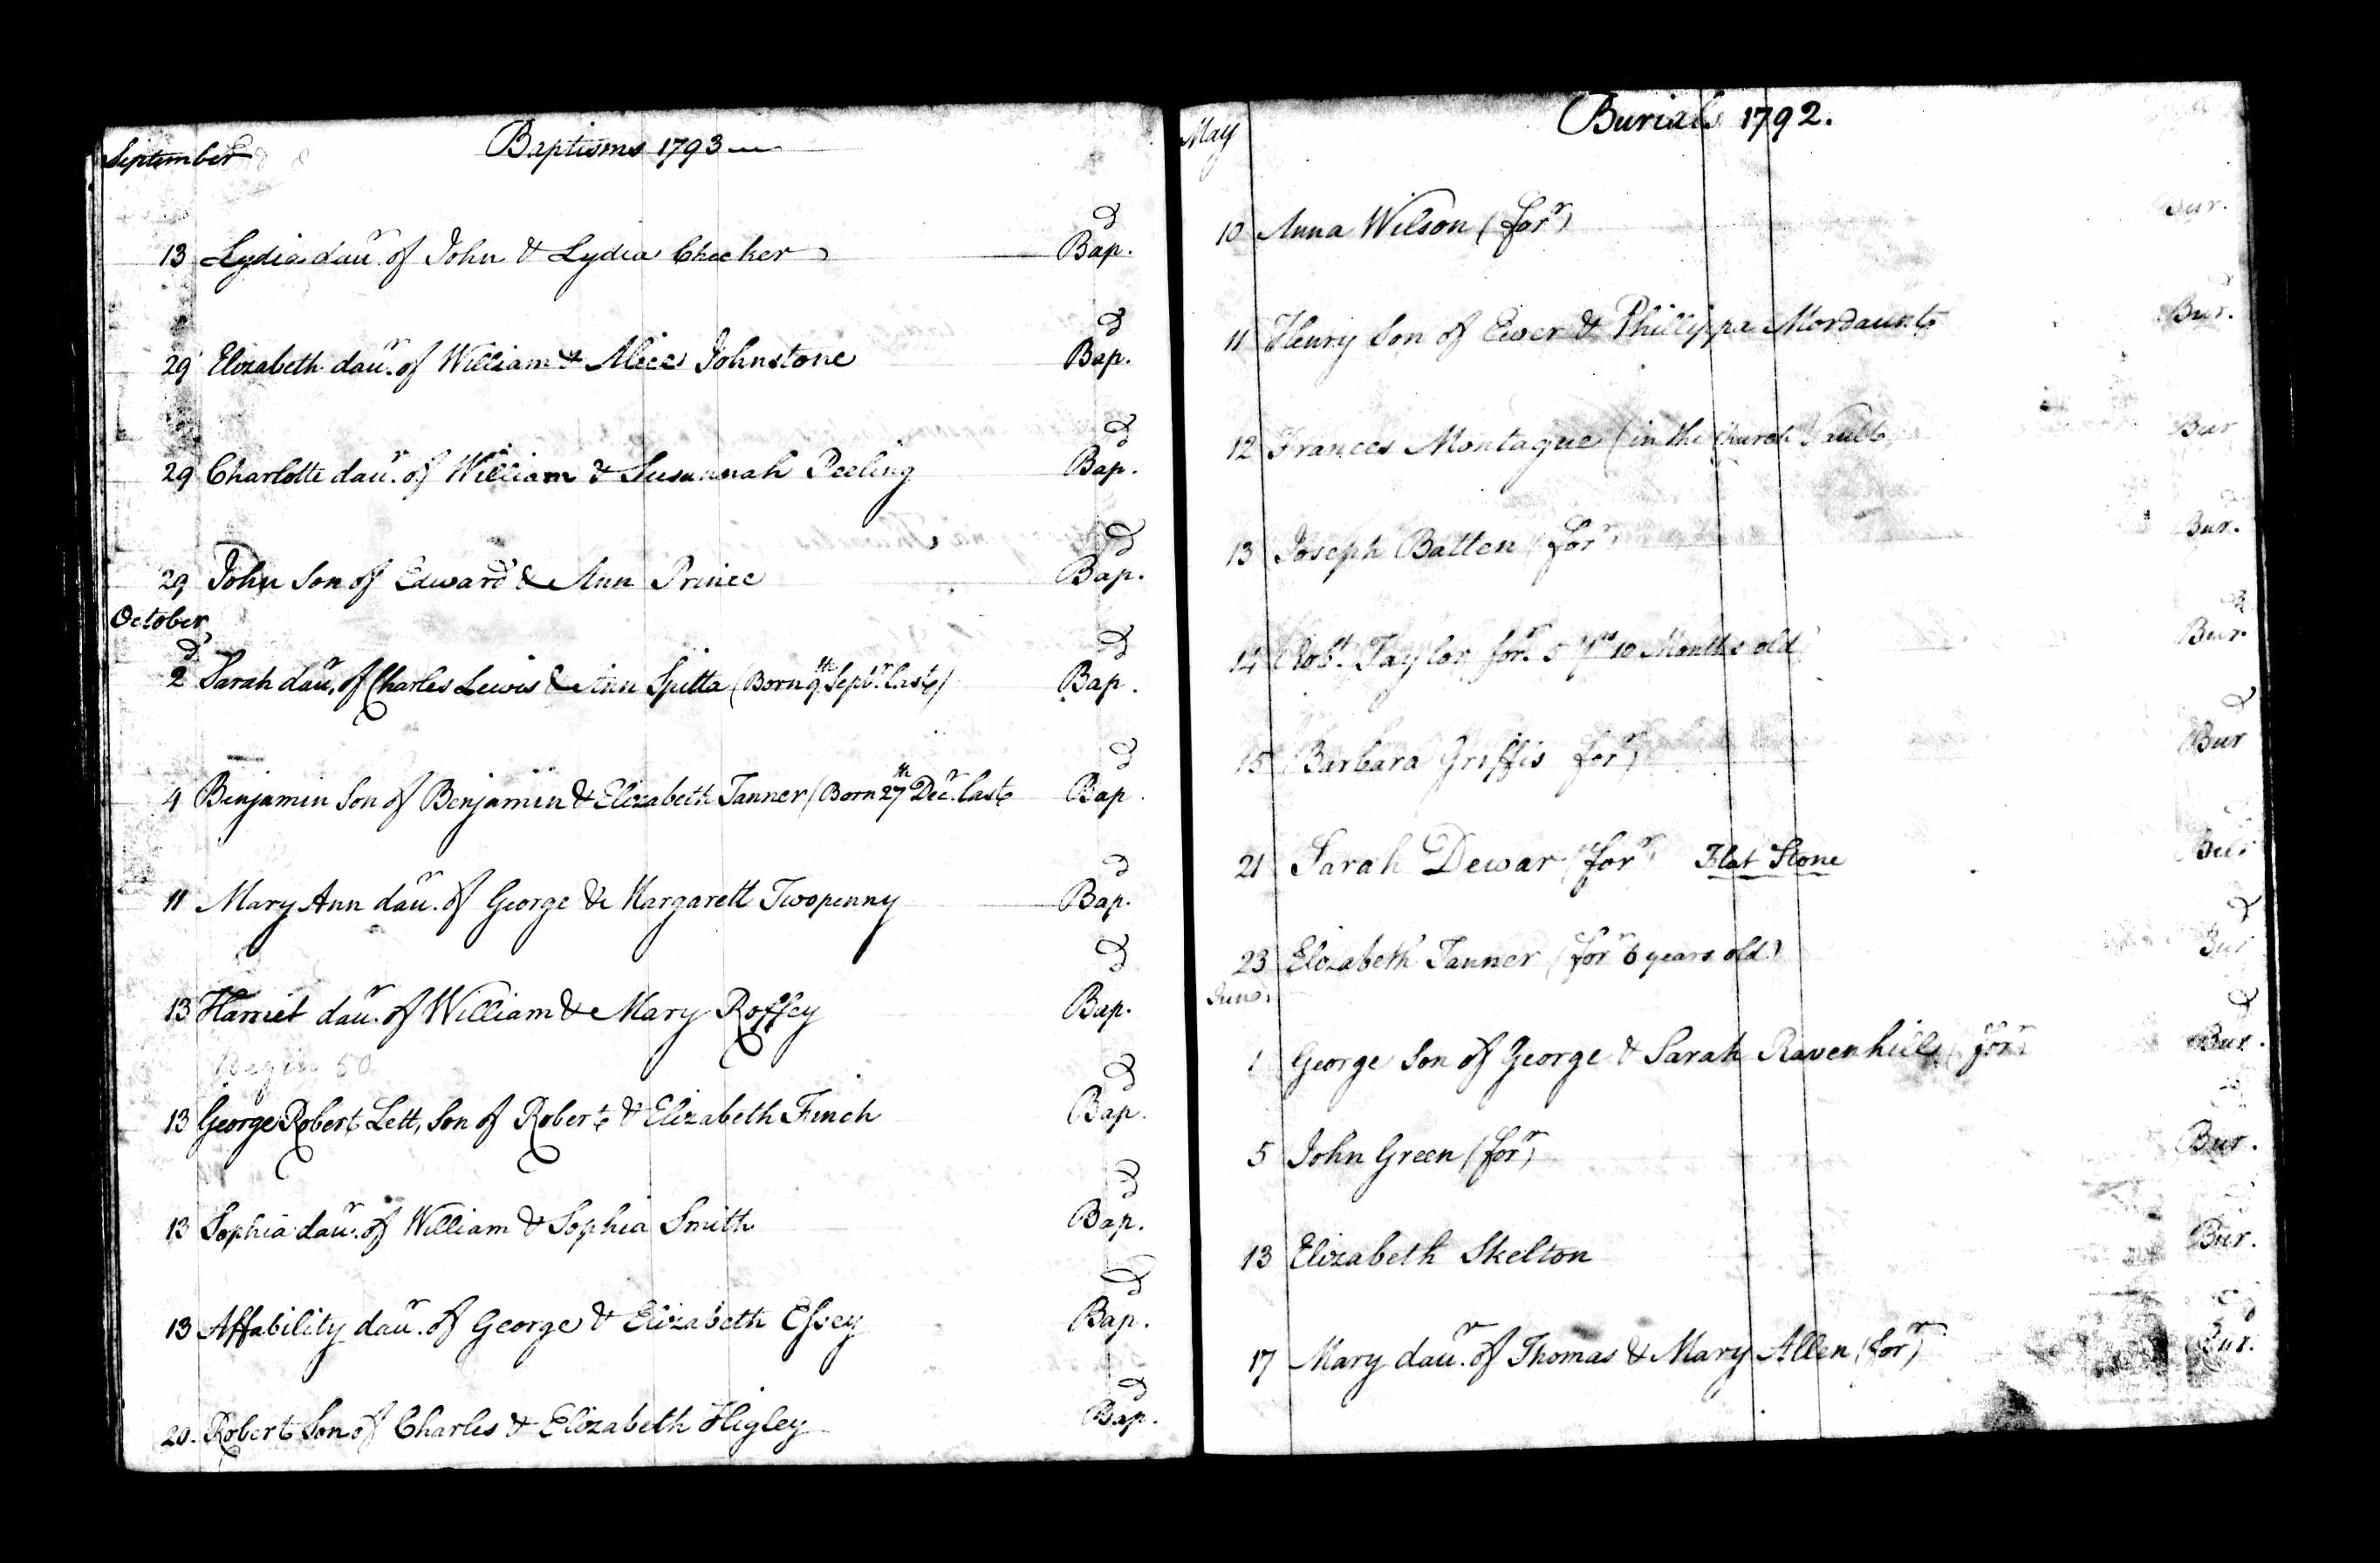 September
Baptisms 1793
13 Lydia daur. of John & Lydia Checker Bapd.
29 Elizabeth daur. of William & Alice Johnstone Bapd.
29 Charlotte daur. of William & Susannah Peeling Bapd.
29 John Son of Edward & Ann Prince Bapd.
October
2d Sarah daur. of Charles Lewis & Ann Spitta (Born 9th Septr. last) Bapd.
4 Benjamin Son of Benjamin & Elizabeth Tanner (Born 27th Decr. last Bapd.
11 Mary Ann daur. of George & Margarett Twopenny Bapd.
13 Harriet daur. of William & Mary Roffey Bapd.
Begin 50
13 George Robert Lett, Son of Robert & Elizabeth Finch Bapd.
13 Sophia daur. of William & Sophia Smith Bapd.
13 Affability daur. of George & Elizabeth Essey Bapd.
20. Robert Son of Charles & Elizabeth Higley Bapd.
May
Burials 1792.
10 Anna Wilson (forr) Bur.
11 Henry Son of Ewer & Phillippa Mordaunt Burd.
12 Frances Montague (in the Church Vault) Bur
13 Joseph Batten (forr) Burd.
14 Robt. Taylor forr. 5 Yrs 10 Months old) Burd.
15 Barbara Griffis forr) Burd
21 Sarah Dewar (forr) Flat Stone Burd
23 Elizabeth Tanner (forr 6 years old) Burd
June
1 George Son of George & Sarah Ravenhill (forr) Burd.
5 John Green (forr) Burd.
13 Elizabeth Skelton Burd.
17 Mary daur. of Thomas & Mary Allen (forr) Burd.